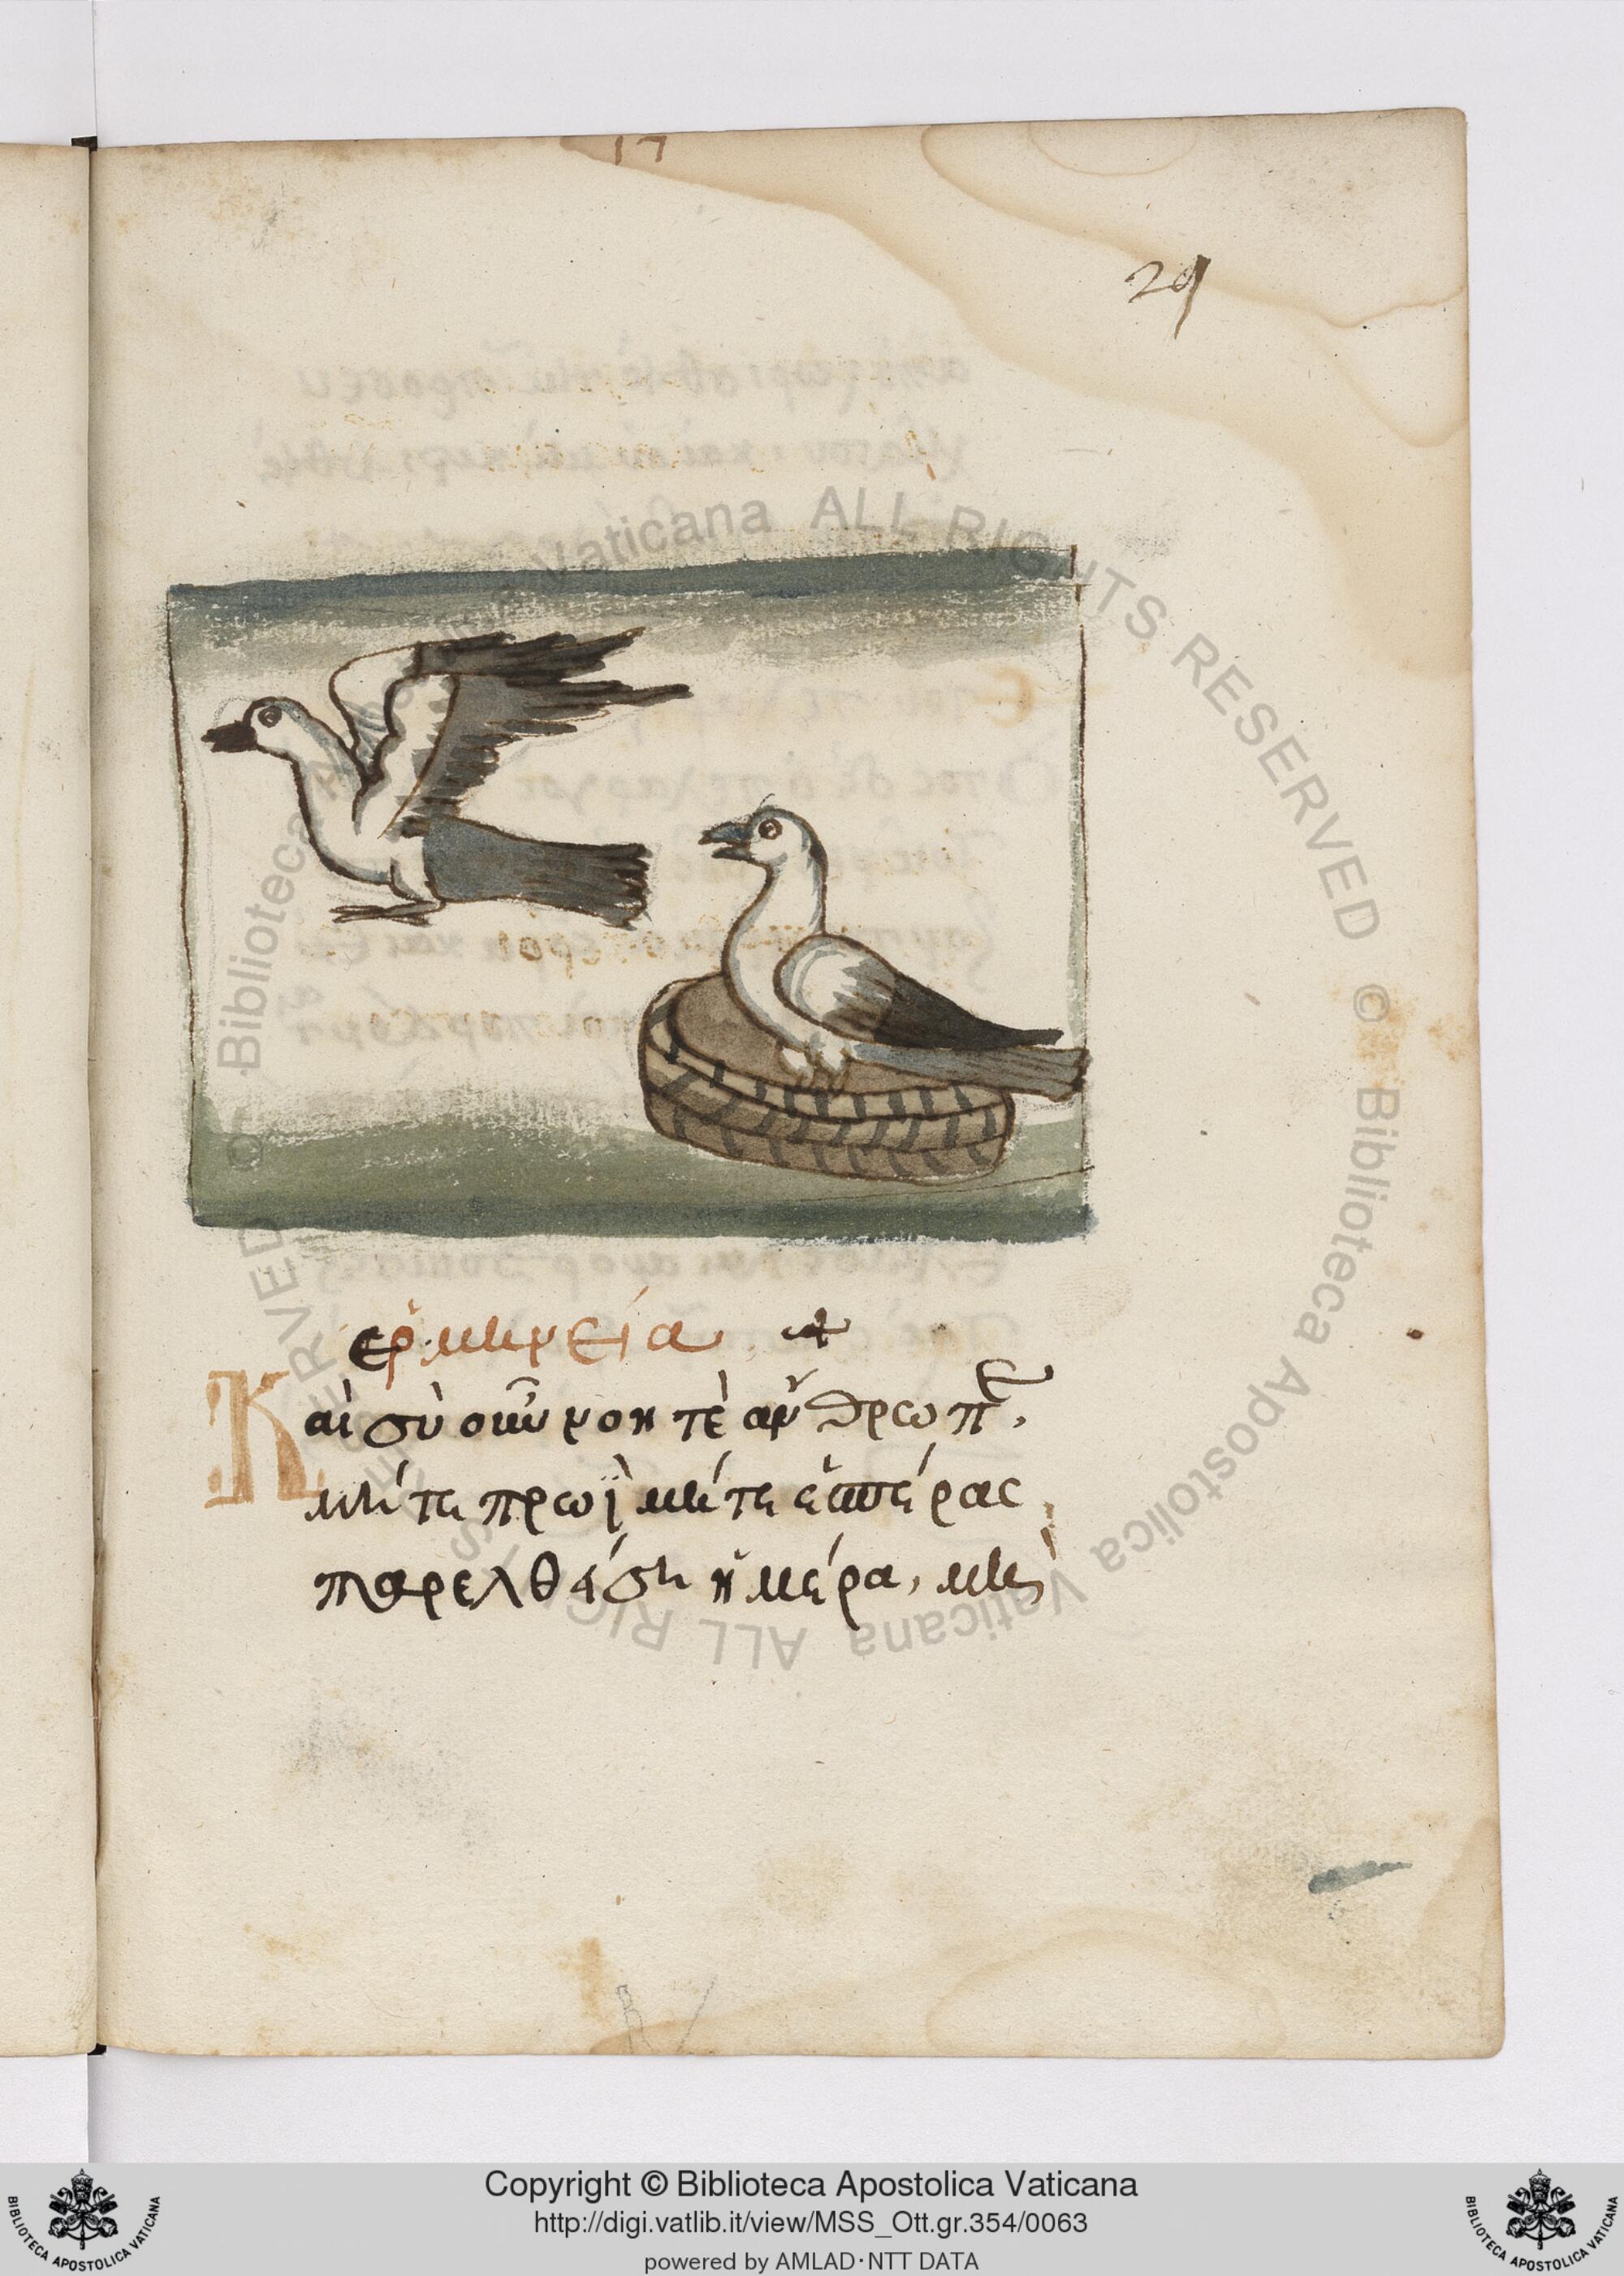 17
29
ερμηνεία +
Καὶ σὺ οὖν νοητὲ ἄνθρωπε,
μήτε πρωῒ μήτε ἑσπέρας
παρελθέση ἡμέρα, μὴ
© Biblioteca Apostolica Vaticana ALL RIGHTS RESERVED © Biblioteca Apostolica Vaticana ALL RIGHTS RESERVED
Copyright © Biblioteca Apostolica Vaticana
http://digi.vatlib.it/view/MSS_Ott.gr.354/0063
powered by AMLAD·NTT DATA
BIBLIOTECA APOSTOLICA VATICANA
BIBLIOTECA APOSTOLICA VATICANA